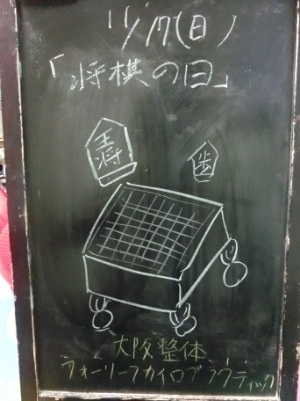 11/17(日)
「将棋の日」
王将
歩
大阪整体
フォーリーフカイロプラクティック